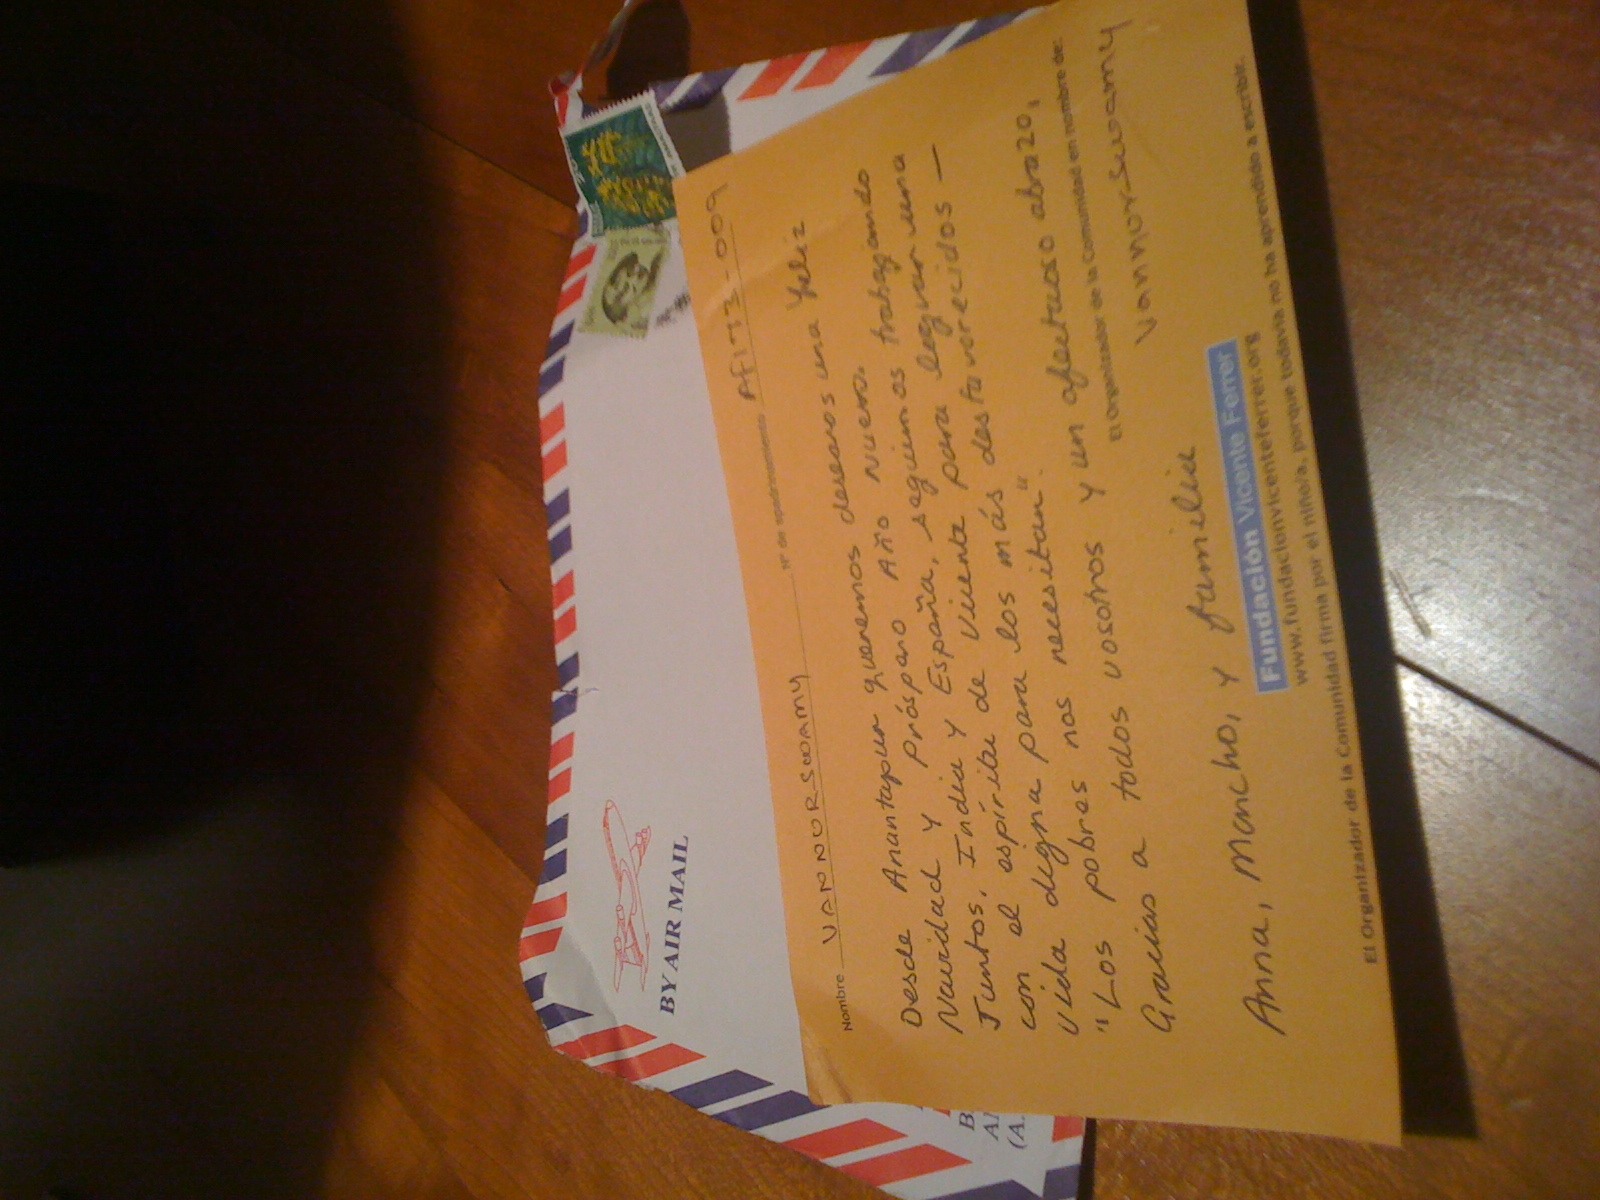 BY AIR MAIL
Nombre VANNURSWAMY Nº de apadrinamiento AF1773-0009
Desde Anantapur queremos desearos una Feliz
Navidad y próspero Año Nuevo.
Juntos, India y España, seguiremos trabajando
con el espíritu de Vicente para lograr una
vida digna para los más desfavorecidos —
"Los pobres nos necesitan".
Gracias a todos vosotros y un afectuoso abrazo,
El Organizador de la Comunidad en nombre de:
Vannurswamy
Anna, Moncho, y familia
Fundación Vicente Ferrer
www.fundacionvicenteferrer.org
El Organizador de la Comunidad firma por el niño/a, porque todavía no ha aprendido a escribir.